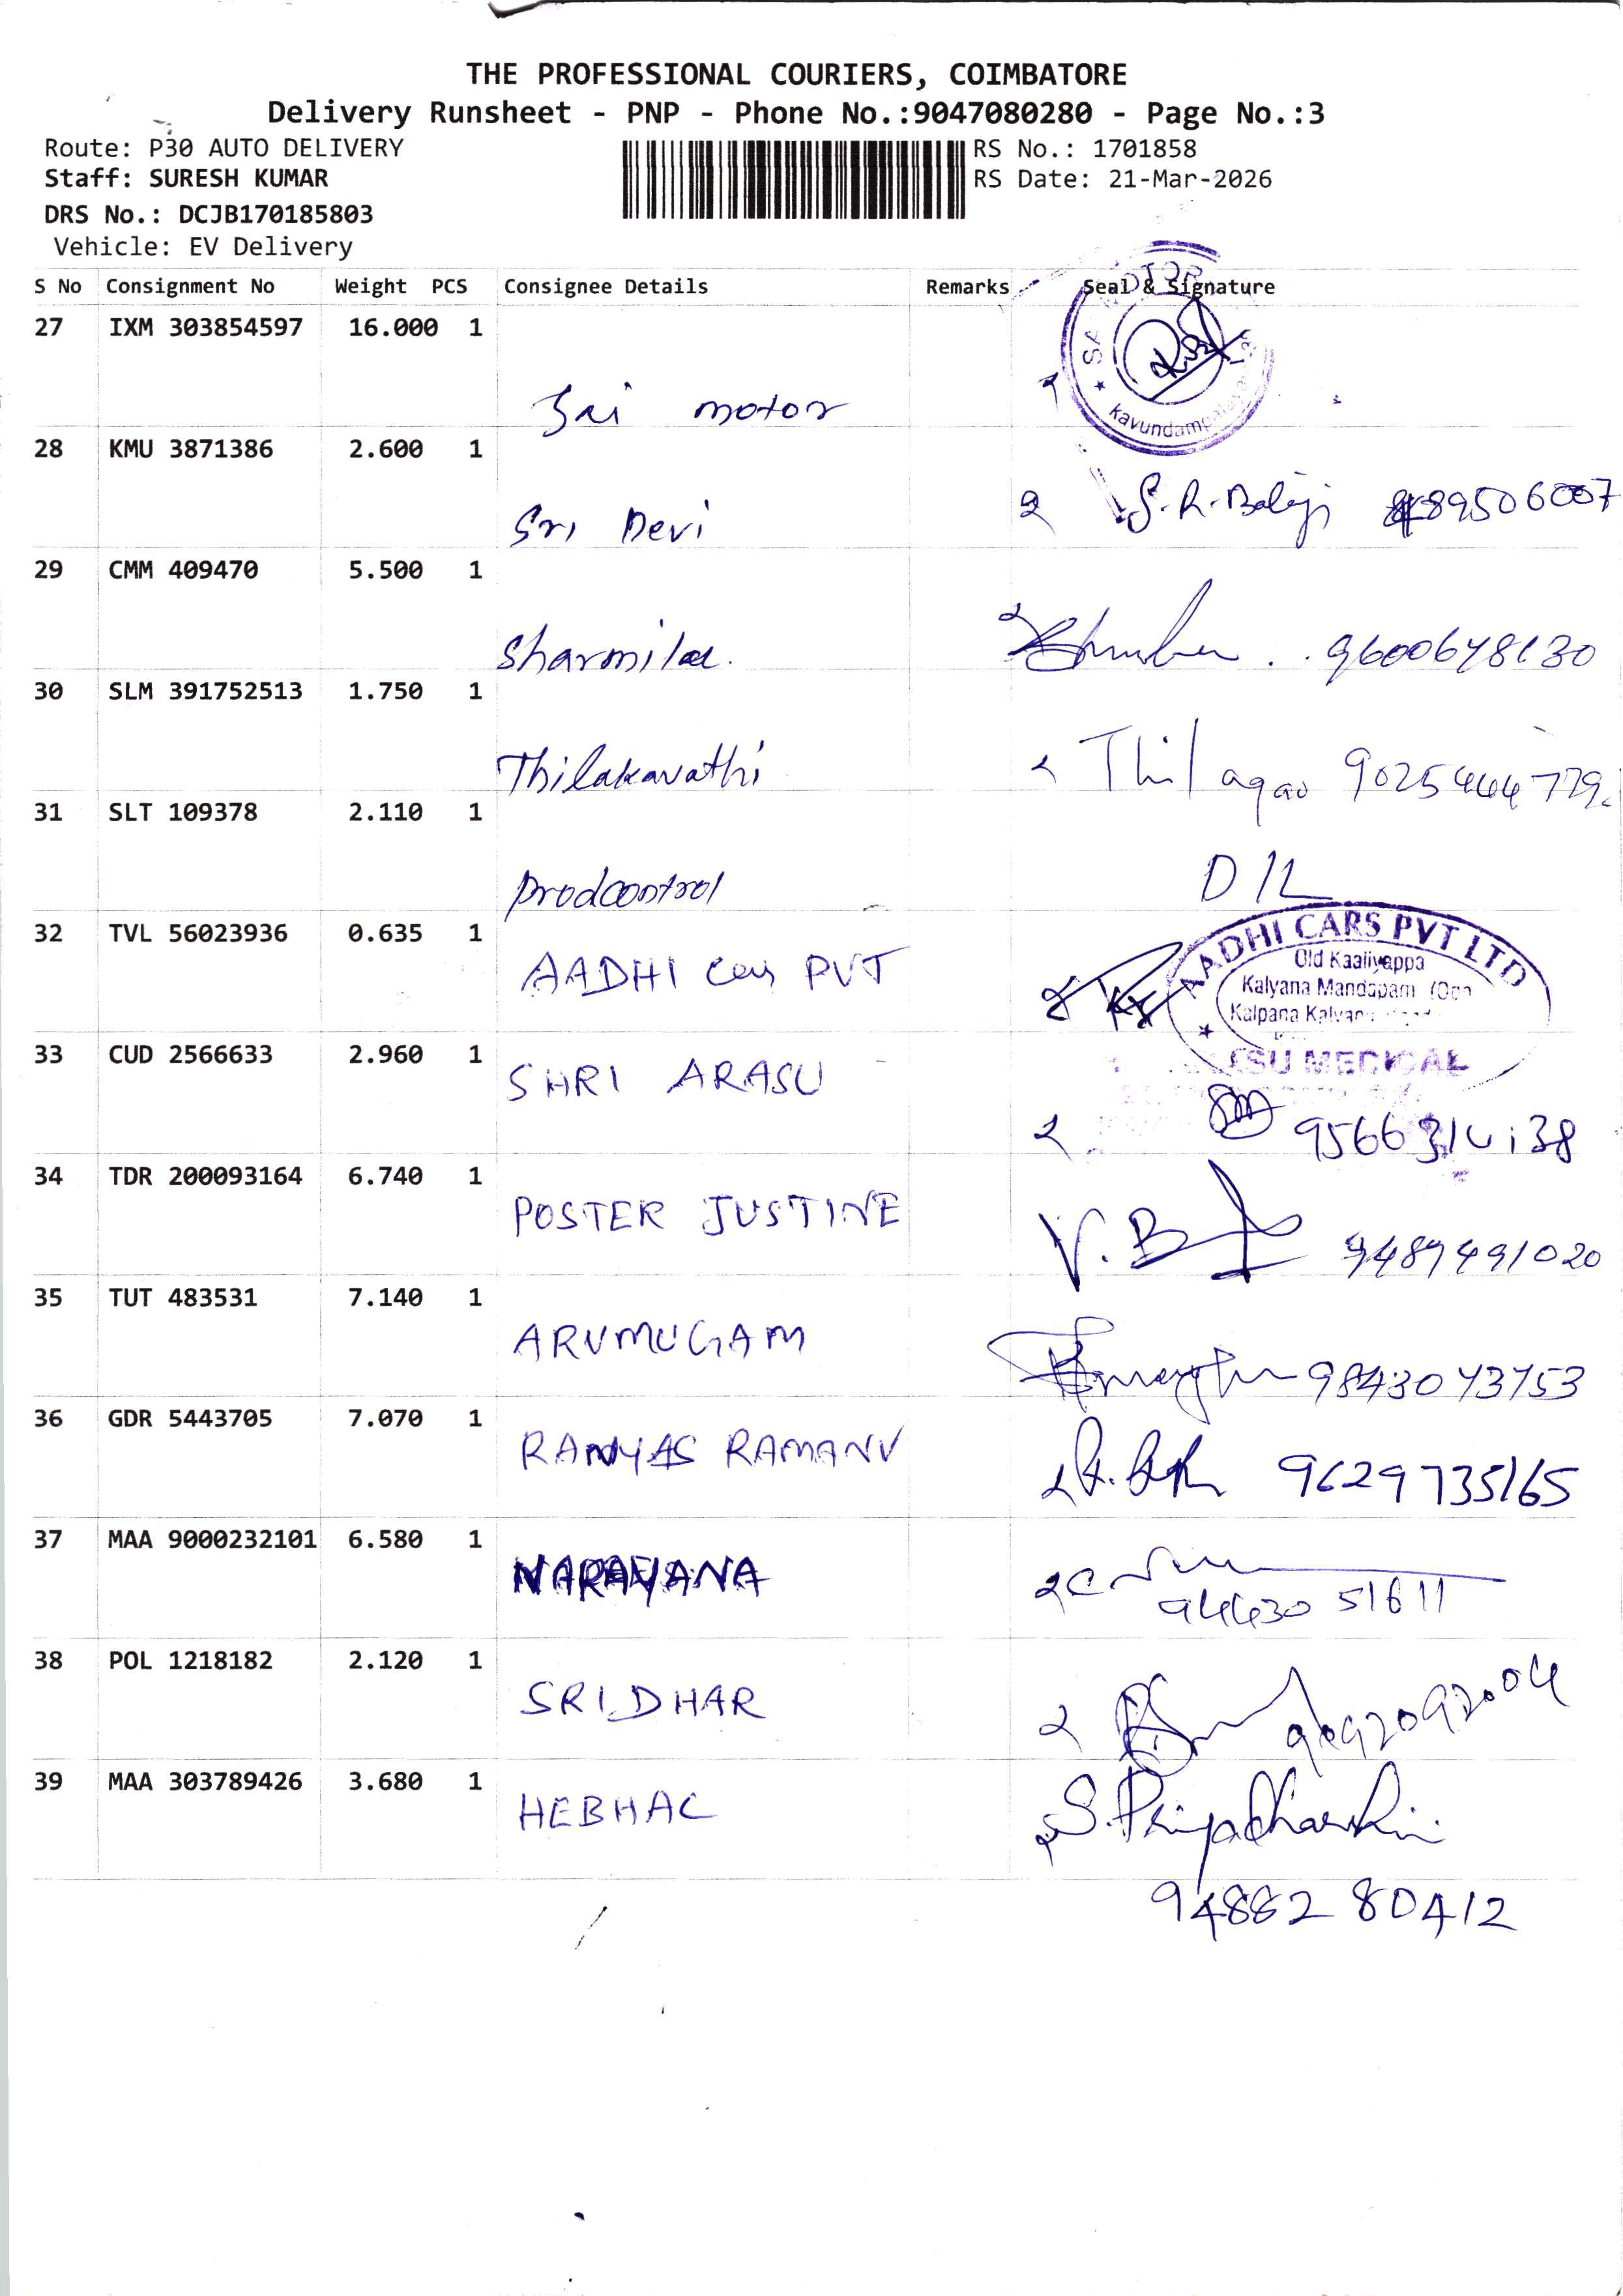 THE PROFESSIONAL COURIERS, COIMBATORE
Delivery Runsheet - PNP - Phone No.:9047080280 - Page No.:3
Route: P30 AUTO DELIVERY
Staff: SURESH KUMAR
DRS No.: DCJB170185803
Vehicle: EV Delivery
RS No.: 1701858
RS Date: 21-Mar-2026
S No Consignment No Weight PCS Consignee Details Remarks Seal & Signature
27 IXM 303854597 16.000 1
Sai motor
Kavundampa
28 KMU 3871386 2.600 1
Sri Devi S.R.Balaji
29 CMM 409470 5.500 1
Sharmila. 9600678130
30 SLM 391752513 1.750 1
Thilakavathi 9025444779
31 SLT 109378 2.110 1
prodcontrol D/L
32 TVL 56023936 0.635 1
AADHI Cars PVT
AADHI CARS PVT LTD
Old Kaaliyappa
Kalyana Mandapam
Kalpana
33 CUD 2566633 2.960 1
SHRI ARASU
MEDICAL
34 TDR 200093164 6.740 1
POSTER JUSTINE 9489491020
35 TUT 483531 7.140 1
ARUMUGAM 9843073753
36 GDR 5443705 7.070 1
RAMANV 9629735165
37 MAA 9000232101 6.580 1
NARAYANA
94430 51611
38 POL 1218182 2.120 1
SRIDHAR 9092092004
39 MAA 303789426 3.680 1
HEBHAC S.Priyadharshini
94882 80412